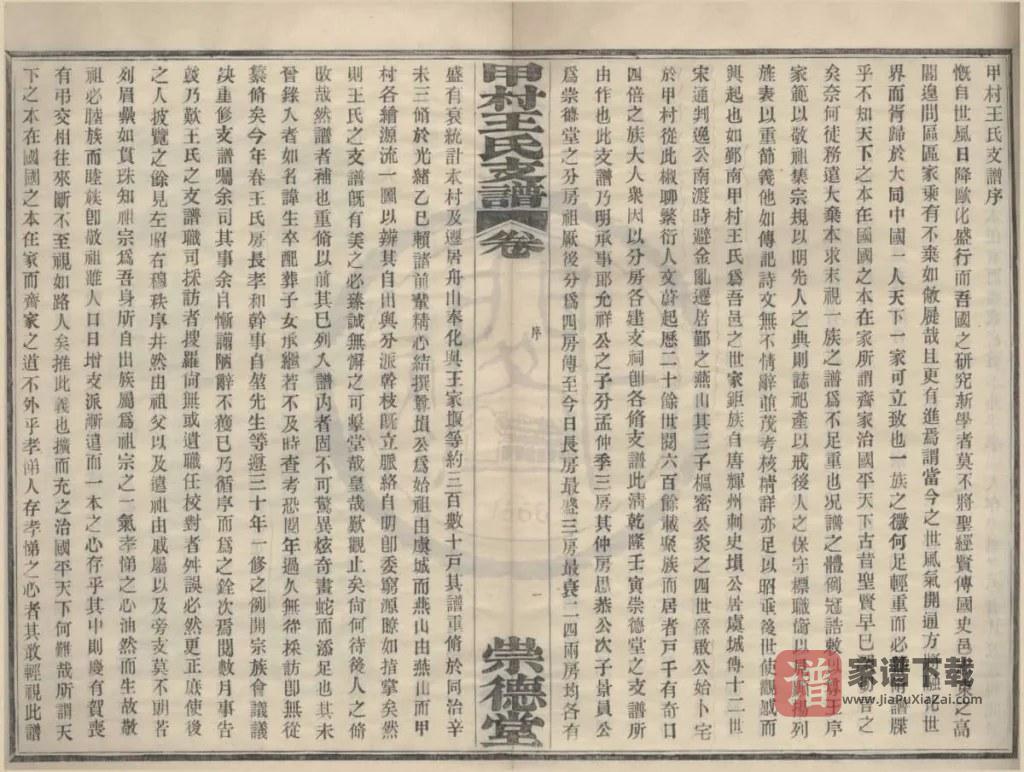 甲村王氏支譜序
慨自世風日降歐化盛行而吾國之研究新學者莫不將聖經賢傳國史邑乘束之高
閣遑問區區家乘有不棄如敝屣哉且更有進焉謂當今之世風氣開通方將融化世
界而胥歸於大同中國一人天下一家可立致也一族之微何足輕重而必譜牒
乎不知天下之本在國國之本在家所謂齊家治國平天下古昔聖賢早已之
矣奈何徒務遠大棄本求末視一族之譜爲不足重也況譜之體例冠誥敕以尊王序
家範以敬祖集宗規以明先人之典則誌祀產以戒後人之保守標職銜以列
旌表以重節義他如傳記詩文無不情辭並茂考核精詳亦足以昭垂後世使觀感而
興起也如鄞南甲村王氏爲吾邑之世家鉅族自唐輝州刺史塤公居虞城傳十二世
宋通判逸公南渡時避金亂遷居鄞之燕山其三子樞密公炎之四世孫啟公始卜宅
於甲村從此椒聊繁衍人文蔚起歷二十餘世閱六百餘載聚族而居者戸千有奇口
四倍之族大人衆因以分房各建支祠卽各修支譜此淸乾隆壬寅崇德堂之支譜所
由作也此支譜乃明承事郎允祥公之子分孟仲季三房其仲房思燕公次子景員公
爲崇德堂之分房祖厥後分爲四房傳至今日長房最盛三房最衰二四兩房均各有
甲村王氏支譜
卷
序
崇德堂
盛有衰統計本村及遷居舟山奉化與王家堰等約三百數十戸其譜重修於同治辛
未三修於光緖乙巳賴諸前輩精心結撰尊塤公爲始祖由虞城而燕山由燕山而甲
村各繪源流一圖以辨其自出與分派幹枝旣立脈絡自明卽委窮源瞭如指掌矣然
則王氏之支譜旣有美之必臻誠無懈之可擊堂哉皇哉歎觀止矣尙何待後人之修
敗哉然譜者補也重修以前其已列入譜內者固不可驚異炫奇畫蛇而添足也其未
曾錄入者如名諱生卒配葬子女承繼若不及時查考恐閱年過久無從採訪卽無從
纂修矣今年春王氏房長孝和幹事自堃先生等遵三十年一修之例開宗族會議議
決重修支譜囑余司其事余自慚譾陋辭不獲已乃循序而爲之銓次焉閱數月事告
竣乃歎王氏之支譜職司採訪者搜羅尙無或遺職任校對者舛誤必然更正庶使後
之人披覽之餘見左昭右穆秩序井然由祖父以及遠祖由戚屬以及旁支莫不明若
列眉纍如貫珠知祖宗爲吾身所自出族屬爲祖宗之一氣孝悌之心油然而生故敬
祖必睦族而睦族卽敬祖雖人口日增支派漸遠而一本之心存乎其中則慶有賀喪
有弔交相往來斷不至視如路人矣推此義也擴而充之治國平天下何難哉所謂天
下之本在國國之本在家而齊家之道不外乎孝悌人存孝悌之心者其敢輕視此譜
譜
家谱下载
www.JiaPuXiaZai.com